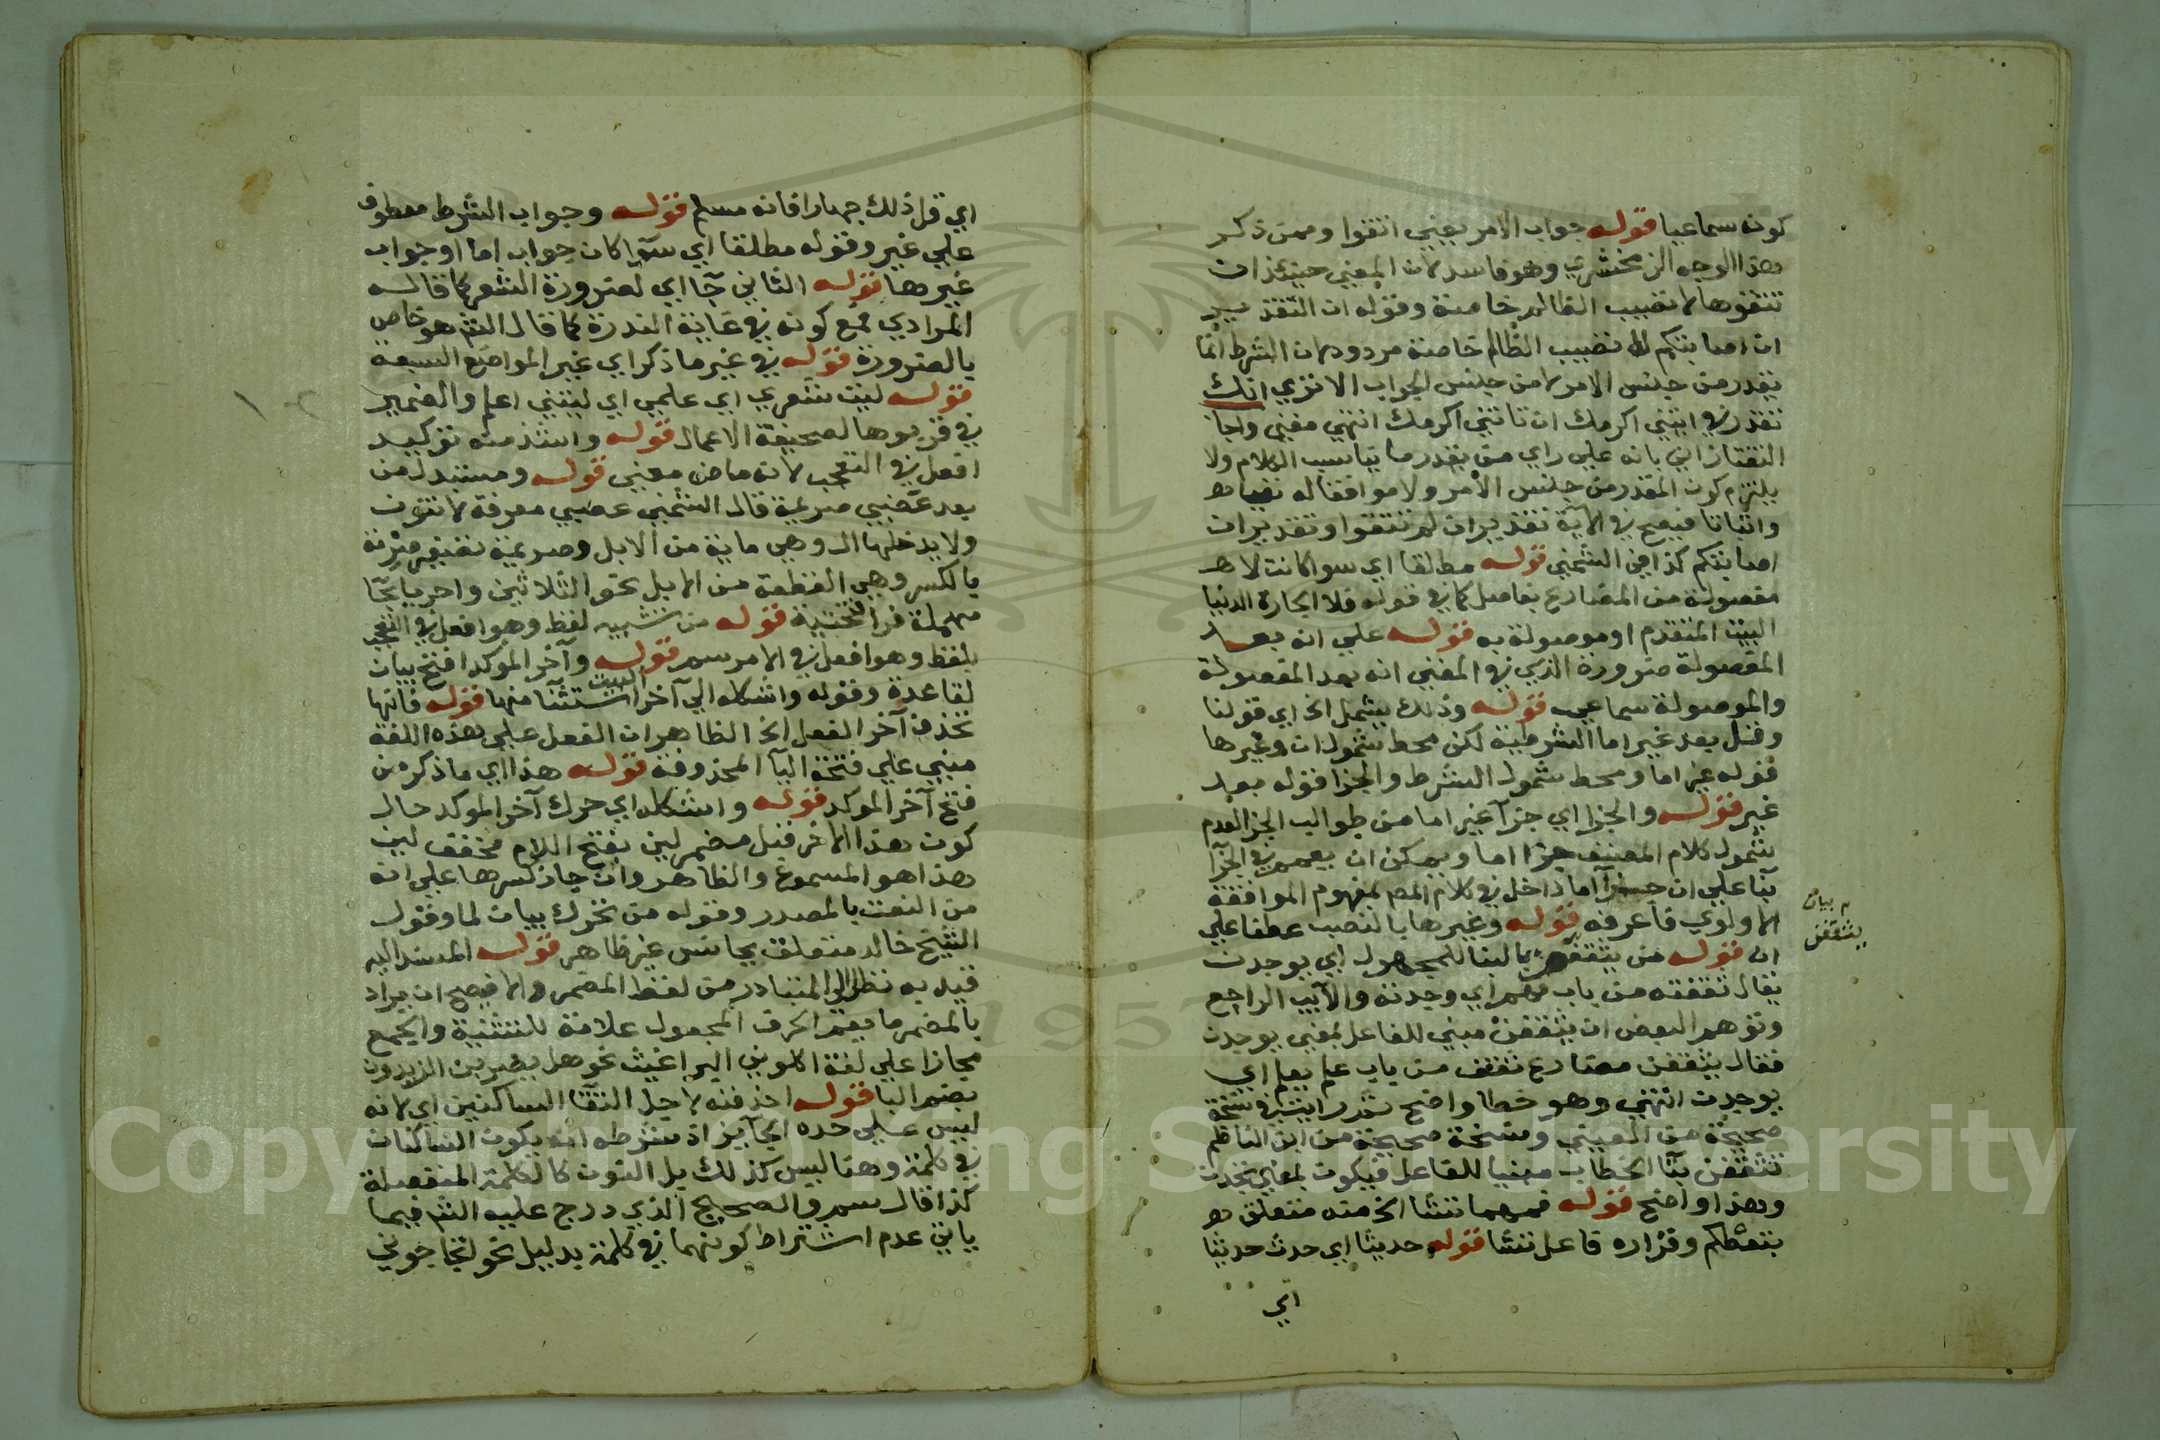 كونه سماعيا قوله جواب الامر يعني اتقوا وممن ذكر
هذا الوجه الزمخشري وهو فاسد لان المعني حينئذ ان
تتقوها لا تصيب الظالم خاصة وقوله ان التقدير
ان اصابتكم لا تصيب الظالم خاصة مردود لان الشرط انما
يقدر من جنس الامر لا من جنس الجواب الا تري انك
تقدر في ايتني اكرمك ان تاتني اكرمك انتهي مغني واجا
التفتازاني بانه علي راي من يقدر ما يناسب الكلام ولا
يلتزم كون المقدر من جنس الامر ولا موافقا له نفيا
واثباتا فيصح في الاية تقدير ان لم تتقوا وتقدير ان
اصابتكم كذا في الشمني قوله مطلقا اي سوا كانت لا
مفصولة من المضارع بفاصل كما في قوله فلا الجارة الدنيا
البيت المتقدم او موصولة به قوله علي انه بعد
المفصولة ضرورة الذي في المغني انه بعد المفصولة
والموصولة سماعي قوله وذلك يشمل الخ اي قولنا
وقبل بعد غير اما الشرطية لكن محط شمول ان وغيرها
قوله غير اما ومحط شمول الشرط والجزا قوله بعد
غير قوله والجزا اي جزآ غير اما من طوالب الجزا لعدم
شمول كلام المصنف جزا اما ويمكن ان يعمم في الجزآ
بنا علي ان جزآ اما داخل في كلام المص لمفهوم الموافقة
الاولوي فاعرفه قوله وغيرها بالنصب عطفا علي
ان قوله من يثقفن بالبنا للمجهول اي يوجدن
يقال ثقفته من باب فهم اي وجدته والآيب الراجع
وتوهم البعض ان يثقفن مبني للفاعل بمعني يوجدن
فقال يثقفن مضارع ثقف من باب علم يعلم اي
يوجدن انتهي وهو خطا واضح نعم رايت في نسخة
صحيحة من العيني ونسخة صحيحة من ابن الناظم
تثقفن بتا الخطاب مبنيا للفاعل فيكون بمعني تجدن
وهذا واضح قوله فمهما تشا الخ منه متعلق
بتعطكم وفزاره فاعل تشا قوله حديثا اي حدث حديثا
اي
بيان
يثقفن
اي قل ذلك جهارا فانه مسلم قوله وجواب الشرط معطوف
علي غير وقوله مطلقا اي سوآ كان جواب اما او جواب
غيرها قوله الثاني جآ اي لضرورة الشعر كما قاله
المرادي مع كونه في غاية الندرة كما قال الش هو خاص
بالضرورة قوله في غير ما ذكر اي غير المواضع السبعه
قوله ليت شعري اي علمي اي ليتني اعلم والضمير
في قربوها لصحيفة الاعمال قوله واشذ منه توكيد
افعل في التعجب لانه ماض معني قوله ومستبدل من
بعد غضبي صريمة قال الشمني غضبي معرفة لا تنون
ولا يدخلها ال وهي ماية من الابل وصريمة تصغير صرمة
بالكسر وهي القطعة من الابل نحو الثلاثين واحريا بحآ
مهملة فرا فتحتية قوله من تشبيه لفظ وهو افعل في التعجب
بلفظ وهو افعل في الامر سم قوله وآخر الموكد افتح بيان
لقاعدة وقوله واشكله الي آخر البيت استثنا منها قوله فانها
تحذف آخر الفعل الخ الظاهر ان الفعل علي هذه اللغة
مبني علي فتحة اليآ المحذوفة قوله هذا اي ما ذكر من
فتح آخر الموكد قوله واشكله اي حرك آخر الموكد حال
كون هذا الاخر قبل مضمر لين بفتح اللام مخفف لين
هذا هو المسموع والظاهر وان جاز كسرها علي انه
من النعت بالمصدر وقوله من تحرك بيان لما وقول
الشيخ خالد متعلق بجانس غير ظاهر قوله المسند اليه
قيد به نظرا الي المتبادر من لفظ المضمر والا فيصح ان يراد
بالمضمر ما يعم الحرف المجعول علامة للتثنية والجمع
مجازا علي لغة اكلوني البراغيث نحو هل يضربن الزيدون
بضم البا قوله احذفنه لاجل التقا الساكنين اي لانه
ليس علي حده الجايز اذ شرطه ان يكون الساكنان
في كلمة وهنا ليس كذلك بل النون كالكلمة المنفصلة
كذا قال سم والصحيح الذي درج عليه الش فيما
ياتي عدم اشتراط كونهما في كلمة بدليل نحو اتحاجوني